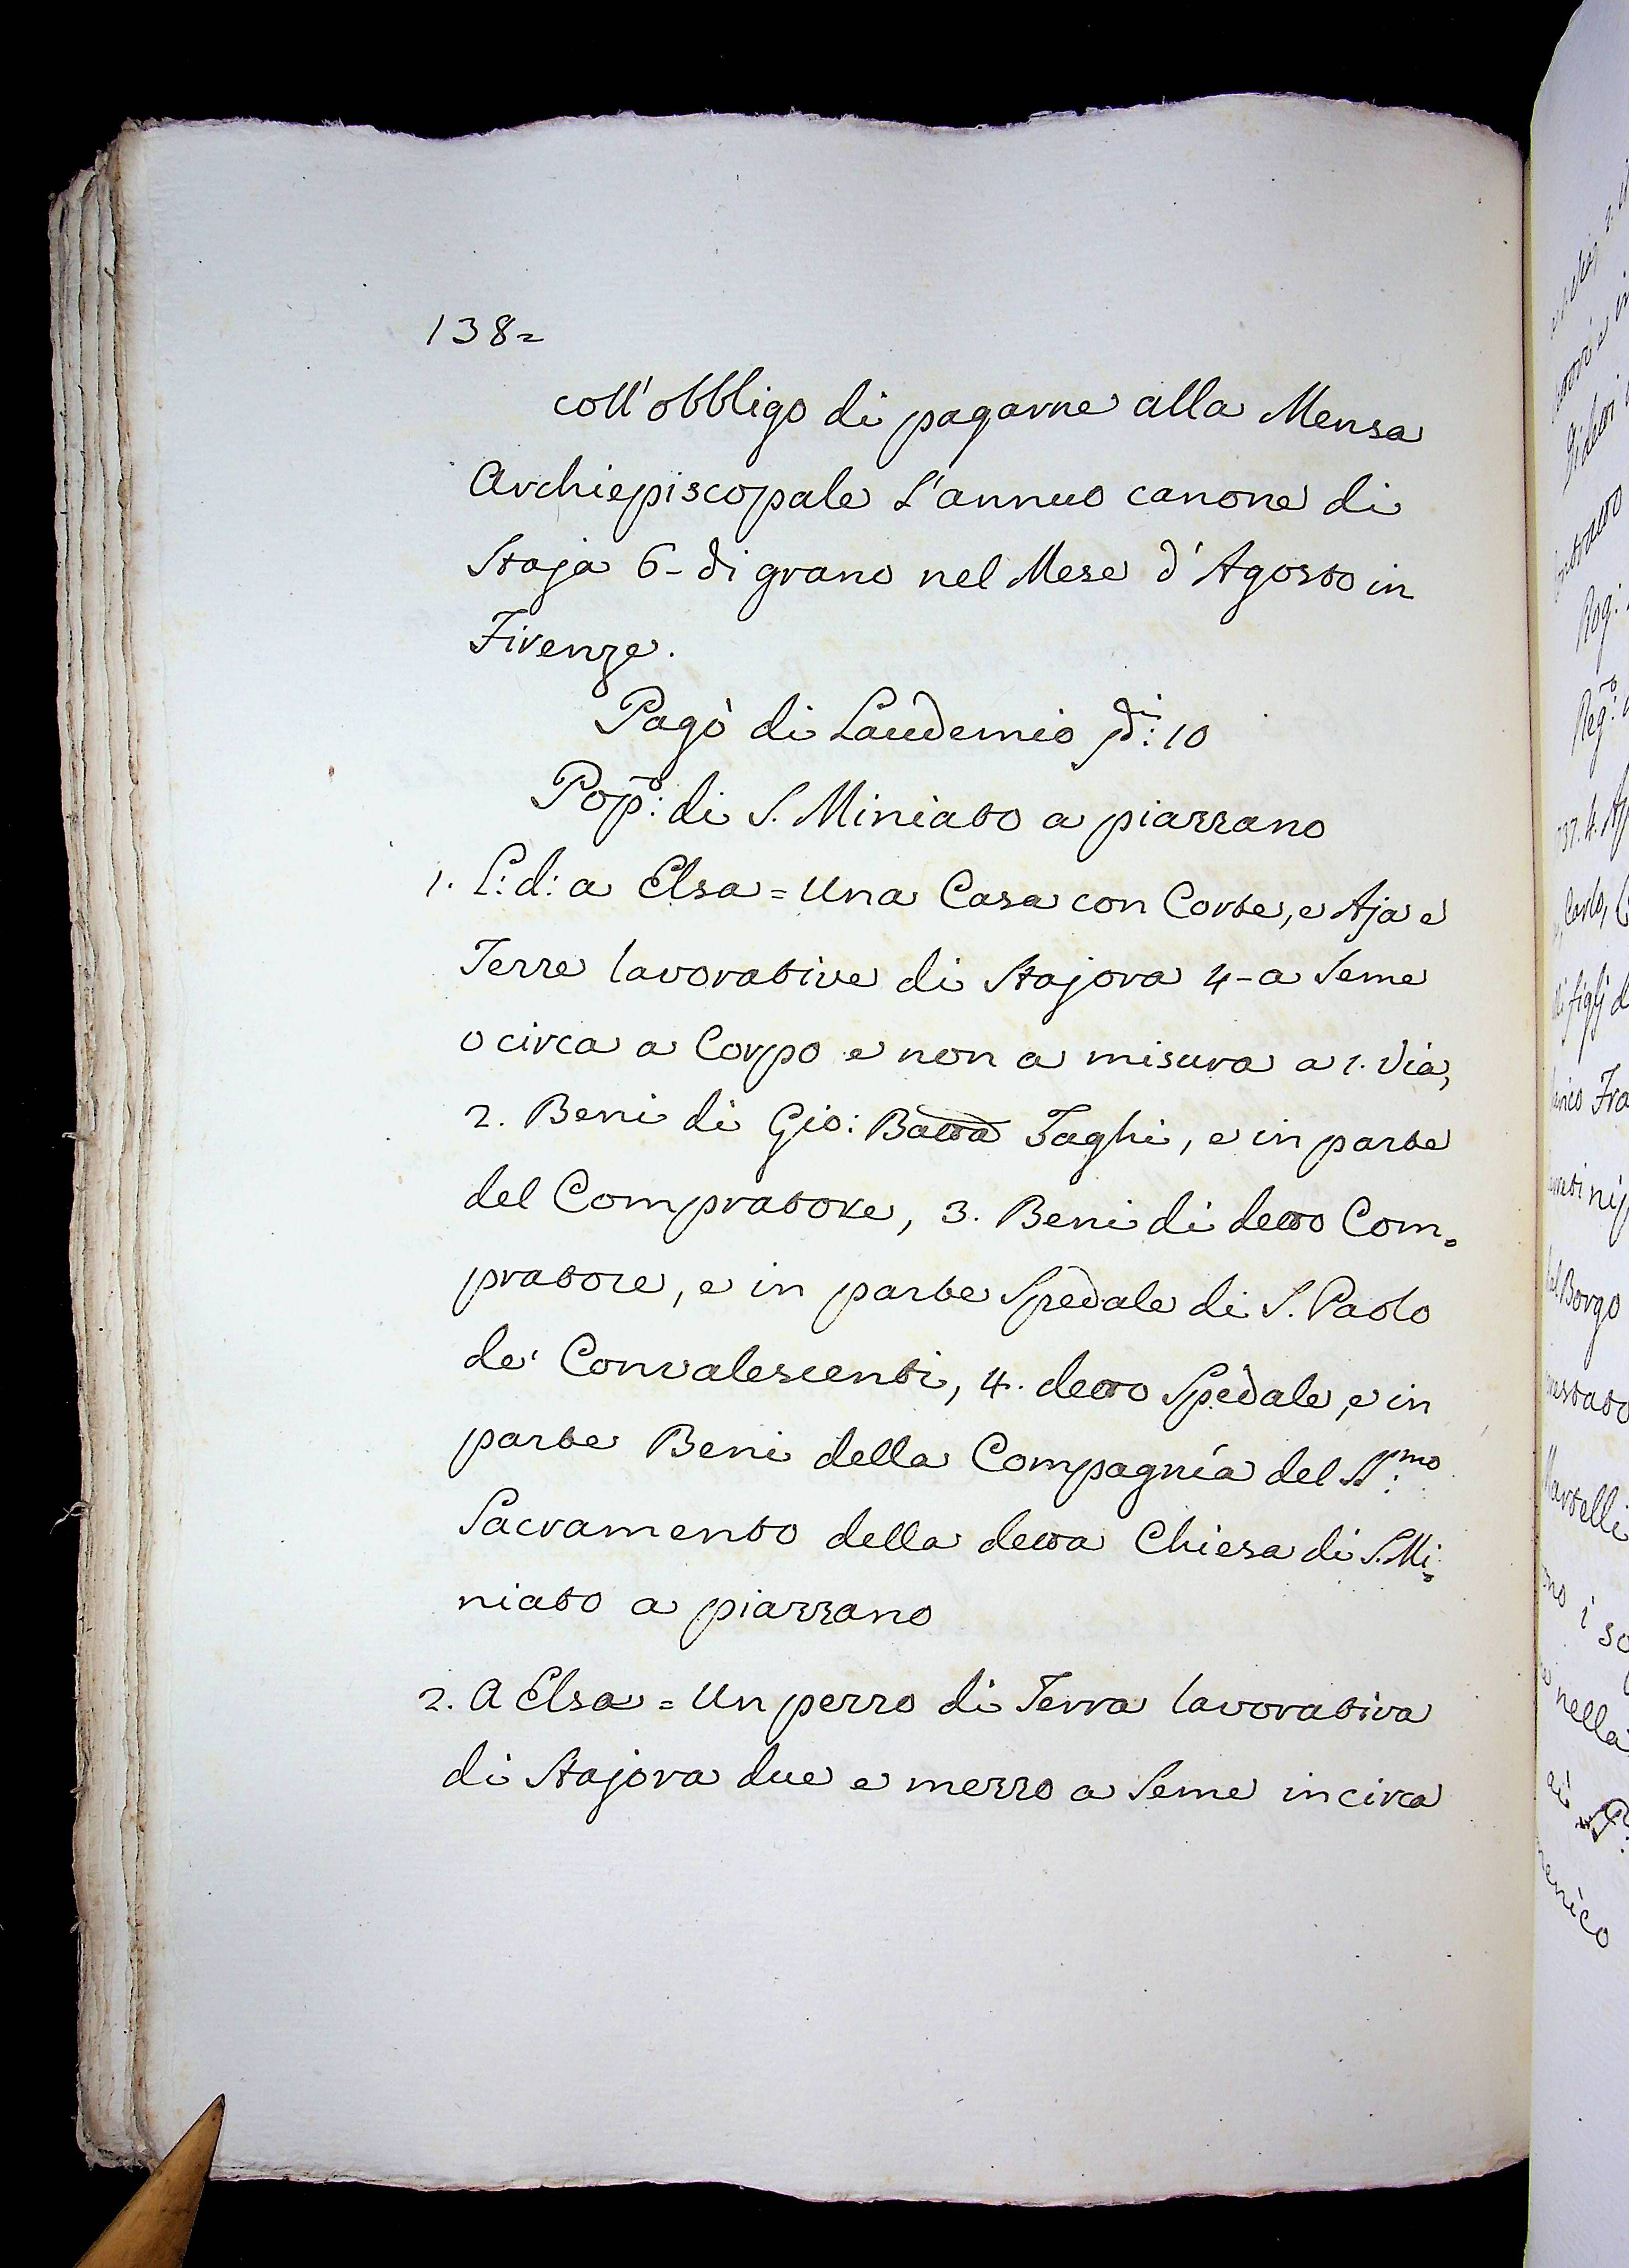 138=
coll'obbligo di pagarne alla Mensa
Archiepiscopale l'annuo canone di
Staja 6- di grano nel Mese d'Agosto in
Firenze.
Pagò di Laudemio 10
Pop:o di S. Miniato a piazzano
1. L: d: a Elsa = Una Casa con Corte, e Aja e
Terre lavorative di Stajora 4- a Seme
o circa a Corpo e non a misura a 1. Via,
2. Beni di Gio: Batta Taghi, e in parte
del Compratore, 3. Beni di detto Com=
pratore, e in parte Spedale di S. Paolo
de' Convalescenti, 4. detto Spedale, e in
parte Beni della Compagnía del SS:mo
Sacramento della detta Chiesa di S. Mi=
niato a piazzano
2. A Elsa = Un pezzo di Terra lavorativa
di Stajora due e mezzo a Seme incirca
Carlo,
figlj
Borgo
Martelli
nella